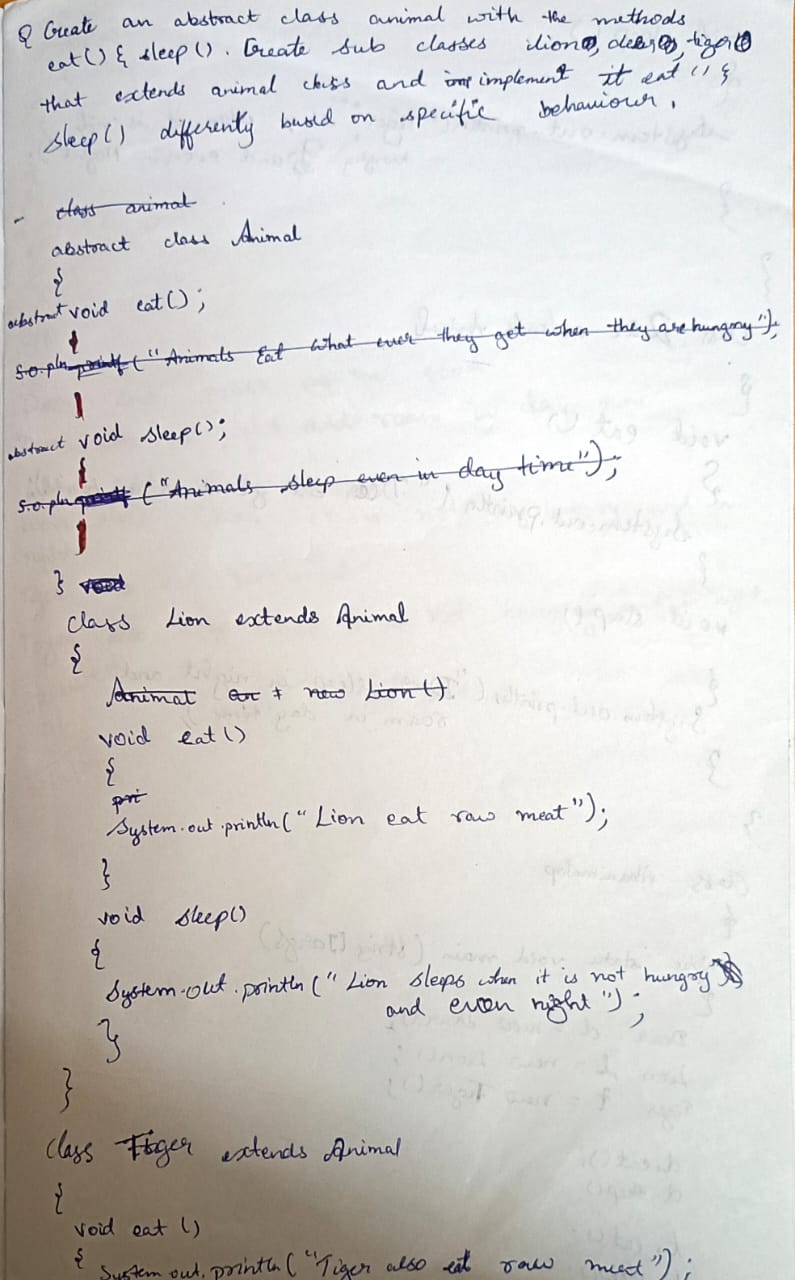 Q Create an abstract class animal with the methods
eat() & sleep(). Create sub classes lion, deer, tiger
that extends animal class and implement it eat () &
sleep() differenty busd on specific behaviour.
- class animal
abstract class Animal
{
abstract void eat();
{
S.o.pln printf ("Animals Eat what ever they get when they are hungry");
}
abstract void sleep();
{
S.o.pln printf ("Animals sleep even in day time");
}
} void
class Lion extends Animal
{
Animal an = new Lion();
void eat()
{
pri
System.out.println("Lion eat raw meat");
}
void sleep()
{
System.out.println("Lion sleeps when it is not hungry
and even night");
}
}
class Tiger extends Animal
{
void eat ()
{ System.out.println("Tiger also eat raw meat");